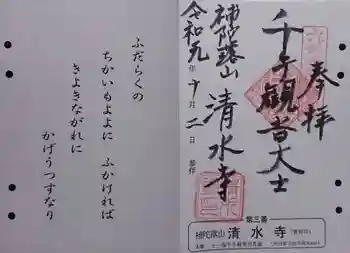 ふだらくの
ちかいもよよに ふかければ
きよきながれに
かげうつすなり
奉拝
千手觀音大士
補陀落山 清水寺
令和元年十月二日 参拝
第三番
補陀落山 清水寺